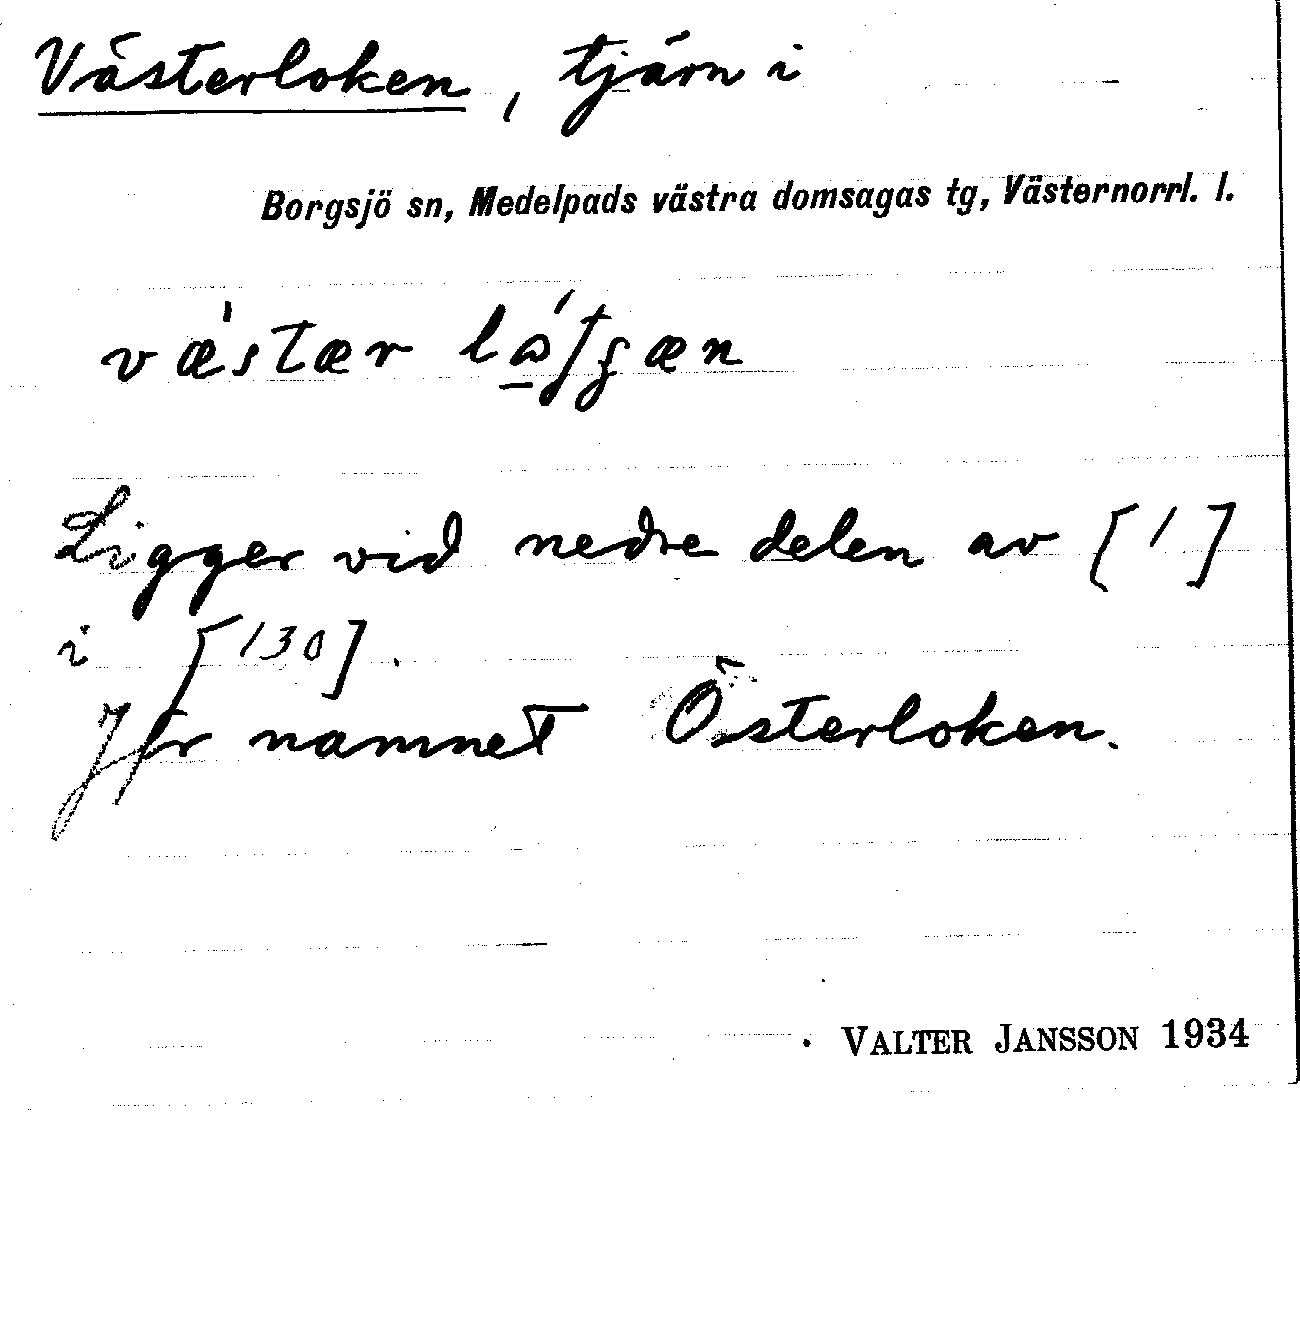 Västerloken, tjärn i
Borgsjö sn, Medelpads västra domsagas tg, Västernorrl. l.
væ'stær
Ligger vid nedre delen av [1]
i [130].
Jfr namnet Österloken.
VALTER JANSSON 1934